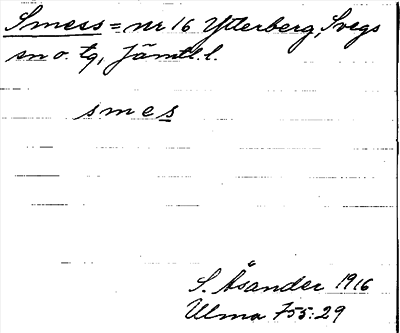 Smess = nr 16 Ytterberg, Svegs
sn o. tg, Jämtl. l.
smes
S. Åsander 1916
Ulma 755:29